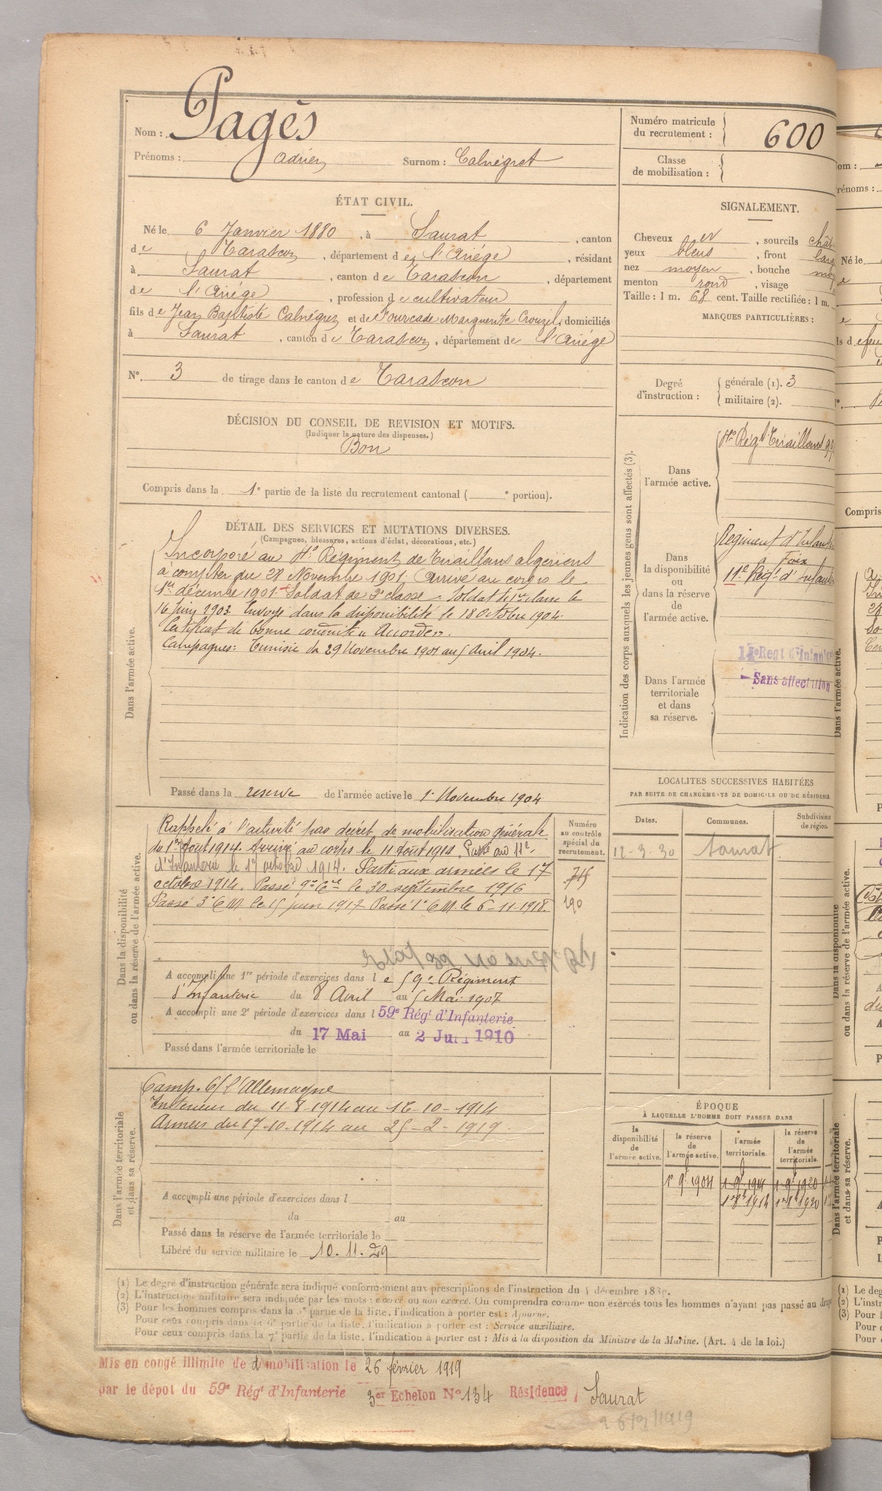 Nom : Pagès
Prénoms : Adrien Surnom : Calnégret
ÉTAT CIVIL.
Né le 6 Janvier 1880, à Saurat, canton
de Tarascon, département de l'Ariége, résidant
à Saurat, canton de Tarascon, département
de l'Ariége, profession de cultivateur
fils de Jean Baptiste Calnégret et de Fourcade Marguerite Crouzil, domiciliés
à Saurat, canton de Tarascon, département de l'Ariége
N° 3 de tirage dans le canton de Tarascon
DÉCISION DU CONSEIL DE REVISION ET MOTIFS.
(Indiquer la nature des dispenses.)
Bon
Compris dans la 1e partie de la liste du recrutement cantonal ( e portion).
DÉTAIL DES SERVICES ET MUTATIONS DIVERSES.
(Campagnes, blessures, actions d'éclat, décorations, etc.)
Dans l'armée active.
Incorporé au 4e Régiment de Tirailleurs algériens
à compter du 28 Novembre 1901. Arrivé au corps le
1er décembre 1901. Soldat de 2e classe. Soldat de 1re classe le
16 juin 1903. Envoyé dans la disponibilité le 18 Octobre 1904.
Certificat de bonne conduite Accordé.
Campagnes: Tunisie du 29 Novembre 1901 au 5 Avril 1904.
Passé dans la reserve de l'armée active le 1er Novembre 1904
Dans la disponibilité
ou dans la réserve de l'armée active.
Numéro
au contrôle
spécial du
recrutement.
Rappelé à l'activité par décret de mobilisation générale
du 1er Août 1914. Arrivé au corps le 11 Août 1914. Passé au 11e
d'Infanterie le 1er octobre 1914. Parti aux armées le 17
octobre 1914. Passé 9e Cie le 30 septembre 1916
Passé 3e C M. le 15 juin 1917 Passé 1e C M. le 6-11-1918.
A accompli une 1re période d'exercices dans le 59e Régiment
d'Infanterie du 8 Avril au 5 Mai 1907
A accompli une 2e période d'exercices dans l 59e Régt d'Infanterie
du 17 Mai au 2 Juin 1910
Passé dans l'armée territoriale le
Dans l'armée territoriale
et dans sa réserve.
Camp. C/ l'Allemagne
Intérieur du 11-8-1914 au 16-10-1914
Armées du 17-10-1914 au 25-2-1919.
A accompli une période d'exercices dans l
du au
Passé dans la réserve de l'armée territoriale le
Libéré du service militaire le 10.11.29
Numéro matricule
du recrutement : 600
Classe
de mobilisation :
SIGNALEMENT.
Cheveux, sourcils
yeux bleus, front
nez moyen, bouche
menton rond, visage
Taille : 1 m. 68 cent. Taille rectifiée : 1 m.
MARQUES PARTICULIÈRES :
Degré
d'instruction : générale (1). 3
militaire (2).
Indication des corps auxquels les jeunes gens sont affectés (3).
Dans
l'armée active.
4e Régt Tirailleurs
Dans
la disponibilité
ou
dans la réserve
de
l'armée active.
Régiment d'Infant
Foix
11e Régt d'Infant
Dans l'armée
territoriale
et dans
sa réserve.
Regt d'Infant
Sans affectation
LOCALITES SUCCESSIVES HABITÉES
PAR SUITE DE CHANGEMENTS DE DOMICILE OU DE RÉSIDEN
Dates. Communes. Subdivisi
de région.
12-3-30 Saurat
ÉPOQUE
À LAQUELLE L'HOMME DOIT PASSER DANS
la
disponibilité
de
l'armée active.
la réserve
de
l'armée active.
l'armée
territoriale.
la réserve
de
l'armée
territoriale.
(1) Le degré d'instruction générale sera indiqué conformément aux prescriptions de l'instruction du 4 décembre 1889.
(2) L'instruction militaire sera indiquée par les mots : exercé ou non exercé. On comprendra comme non exercés tous les hommes n'ayant pas passé au
(3) Pour les hommes compris dans la 5e partie de la liste, l'indication à porter est : Ajourné.
Pour ceux compris dans la 6e partie de la liste, l'indication à porter est : Service auxiliaire.
Pour ceux compris dans la 7e partie de la liste, l'indication à porter est : Mis à la disposition du Ministre de la Marine. (Art. 4 de la loi.)
Mis en congé illimité de démobilisation le 26 février 1919
par le dépôt du 59e Régt d'Infanterie 3er Echelon N° 134 Résidence : Saurat